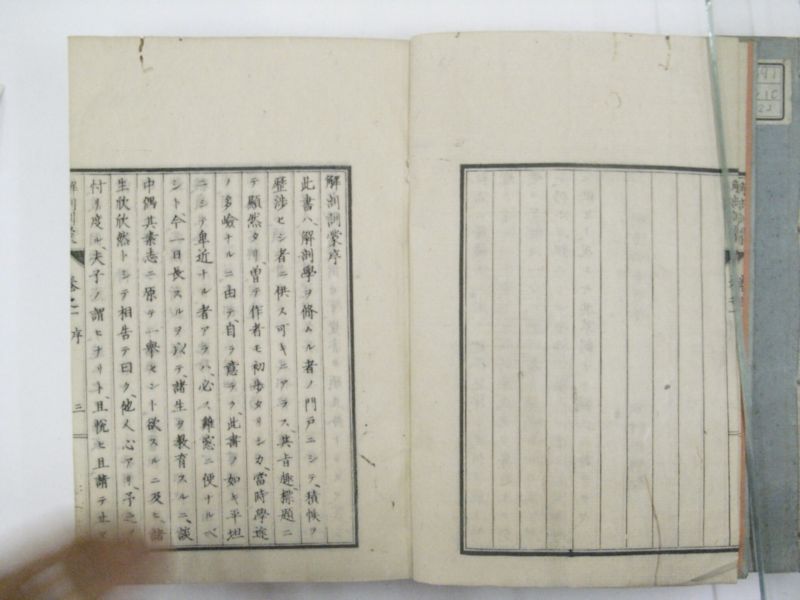 解剖訓蒙序
此書ハ、解剖學ヲ脩ムル者ノ門戸ニシテ、積帙ヲ
歴渉セシ者ニ供ス可キニアラス、其旨趣、標題ニ
テ顯然タリ、曽テ作者モ初歩タリシカ、當時學途
ノ多嶮ナルニ由テ、自ラ意テラク、此書ノ如キ平坦
ニシテ卑近ナル者アラハ、必ス難窓ニ便ナルベ
シト、今一日長スルヲ以テ、諸生ヲ教育スルニ、談
中偶其素志ニ原テ一擧セント欲スルニ及ヒ、諸
生欣然トシテ相告テ曰ク、他人心アリ、予之ヲ
忖度ル、夫子ノ謂ヒナリト、且悦ヒ且請テ止マ
解剖訓蒙
卷之一 序
三